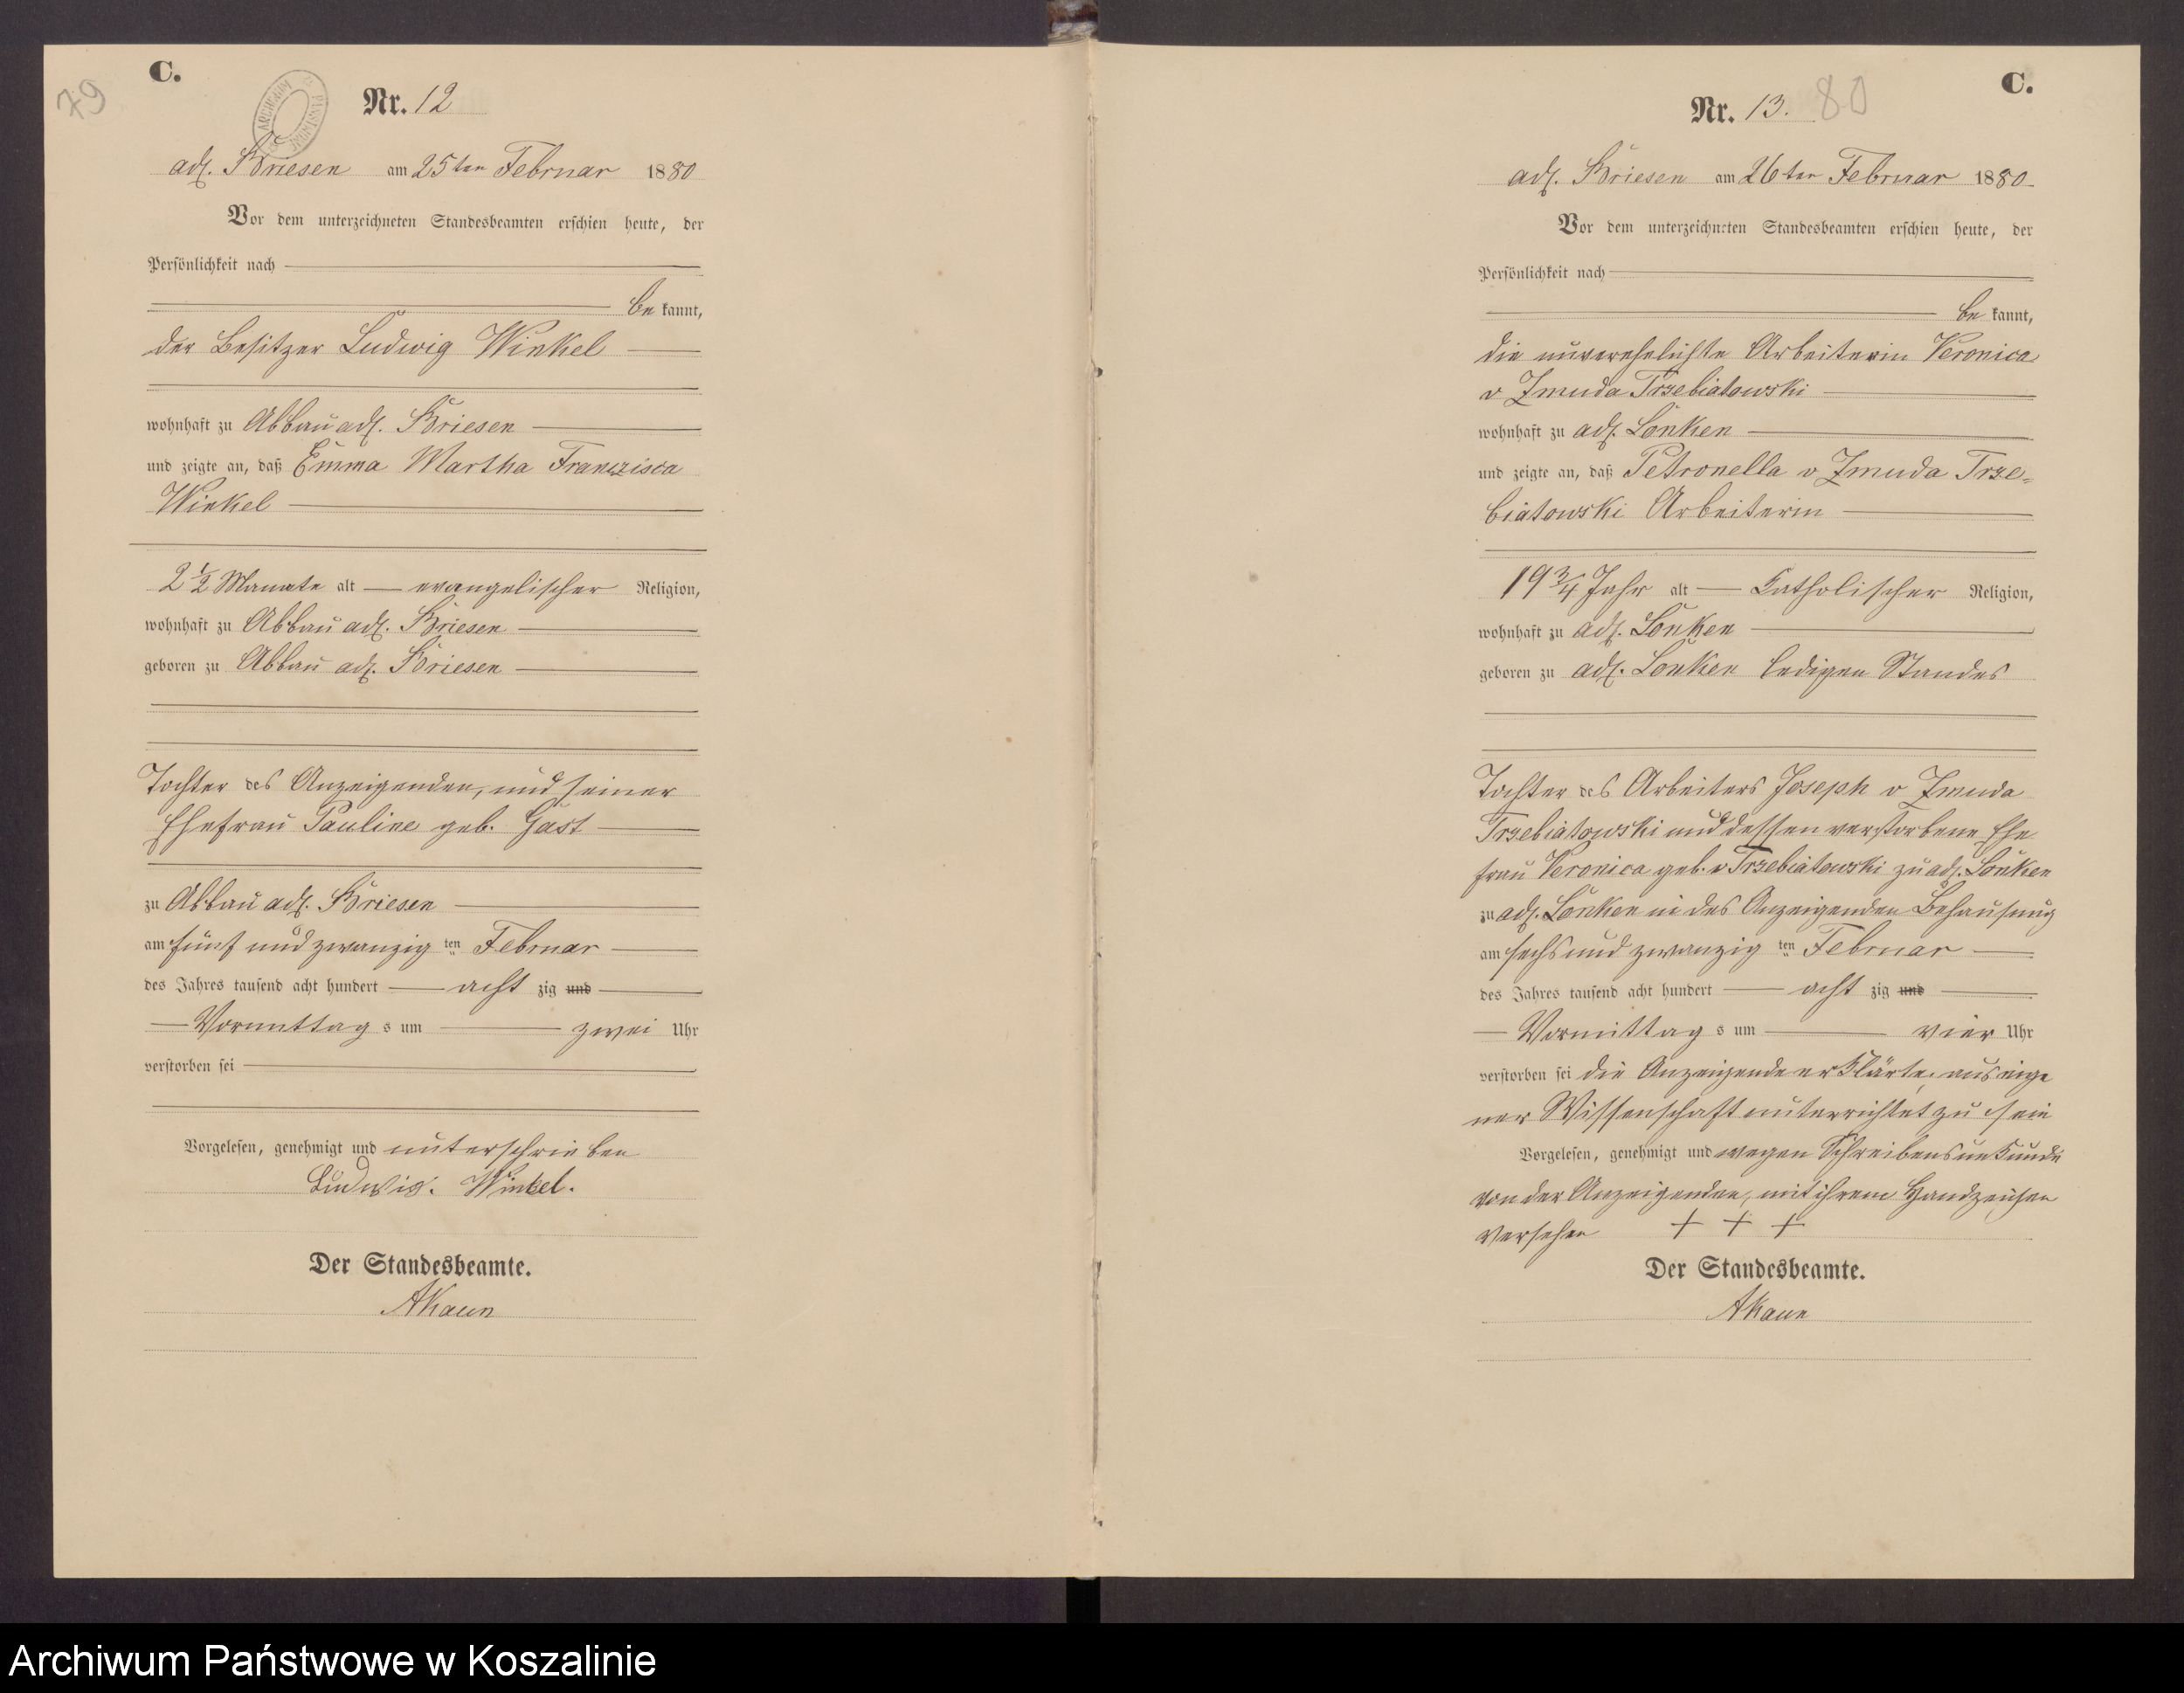 C.
79
ARCHIWUM PAŃSTWOWE
Nr. 12
adl. Briesen am 25ten Februar 1880
Vor dem unterzeichneten Standesbeamten erschien heute, der
Persönlichkeit nach
be kannt,
der Besitzer Ludwig Winkel
wohnhaft zu Abbau adl. Briesen
und zeigte an, daß Emma Martha Franzisca
Winkel
2 1/2 Monate alt — evangelischer Religion,
wohnhaft zu Abbau adl. Briesen
geboren zu Abbau adl. Briesen
Tochter des Anzeigenden, und seiner
Ehefrau Pauline geb. Gast
zu Abbau adl. Briesen
am fünf und zwanzig ten Februar
des Jahres tausend acht hundert — acht zig und
Vormittag s um zwei Uhr
verstorben sei
Vorgelesen, genehmigt und unterschrieben
Ludwig. Winkel.
Der Standesbeamte.
AKaun
C.
Nr. 13. 80
adl. Briesen am 26ten Februar 1880
Vor dem unterzeichneten Standesbeamten erschien heute, der
Persönlichkeit nach
be kannt,
die unverehelichte Arbeiterin Veronica
v Zmuda Trzebiatowski
wohnhaft zu adl. Lonken
und zeigte an, daß Petronella v Zmuda Trze=
biatowski Arbeiterin
19 3/4 Jahr alt — Katholischer Religion,
wohnhaft zu adl. Lonken
geboren zu adl. Lonken ledigen Standes
Tochter des Arbeiters Joseph v Zmuda
Trzebiatowski und dessen verstorbene Ehe
frau Veronica geb. v Trzebiatowski zu adl. Lonken
zu adl. Lonken in des Anzeigenden Behausung
am sechs und zwanzig ten Februar
des Jahres tausend acht hundert — acht zig und
Vormittag s um vier Uhr
verstorben sei die Anzeigende erklärte, aus eige
ner Wissenschaft unterrichtet zu sein
Vorgelesen, genehmigt und wegen Schreibensunkunde
von der Anzeigenden, mit ihrem Handzeichen
versehen + + +
Der Standesbeamte.
AKaun
Archiwum Państwowe w Koszalinie